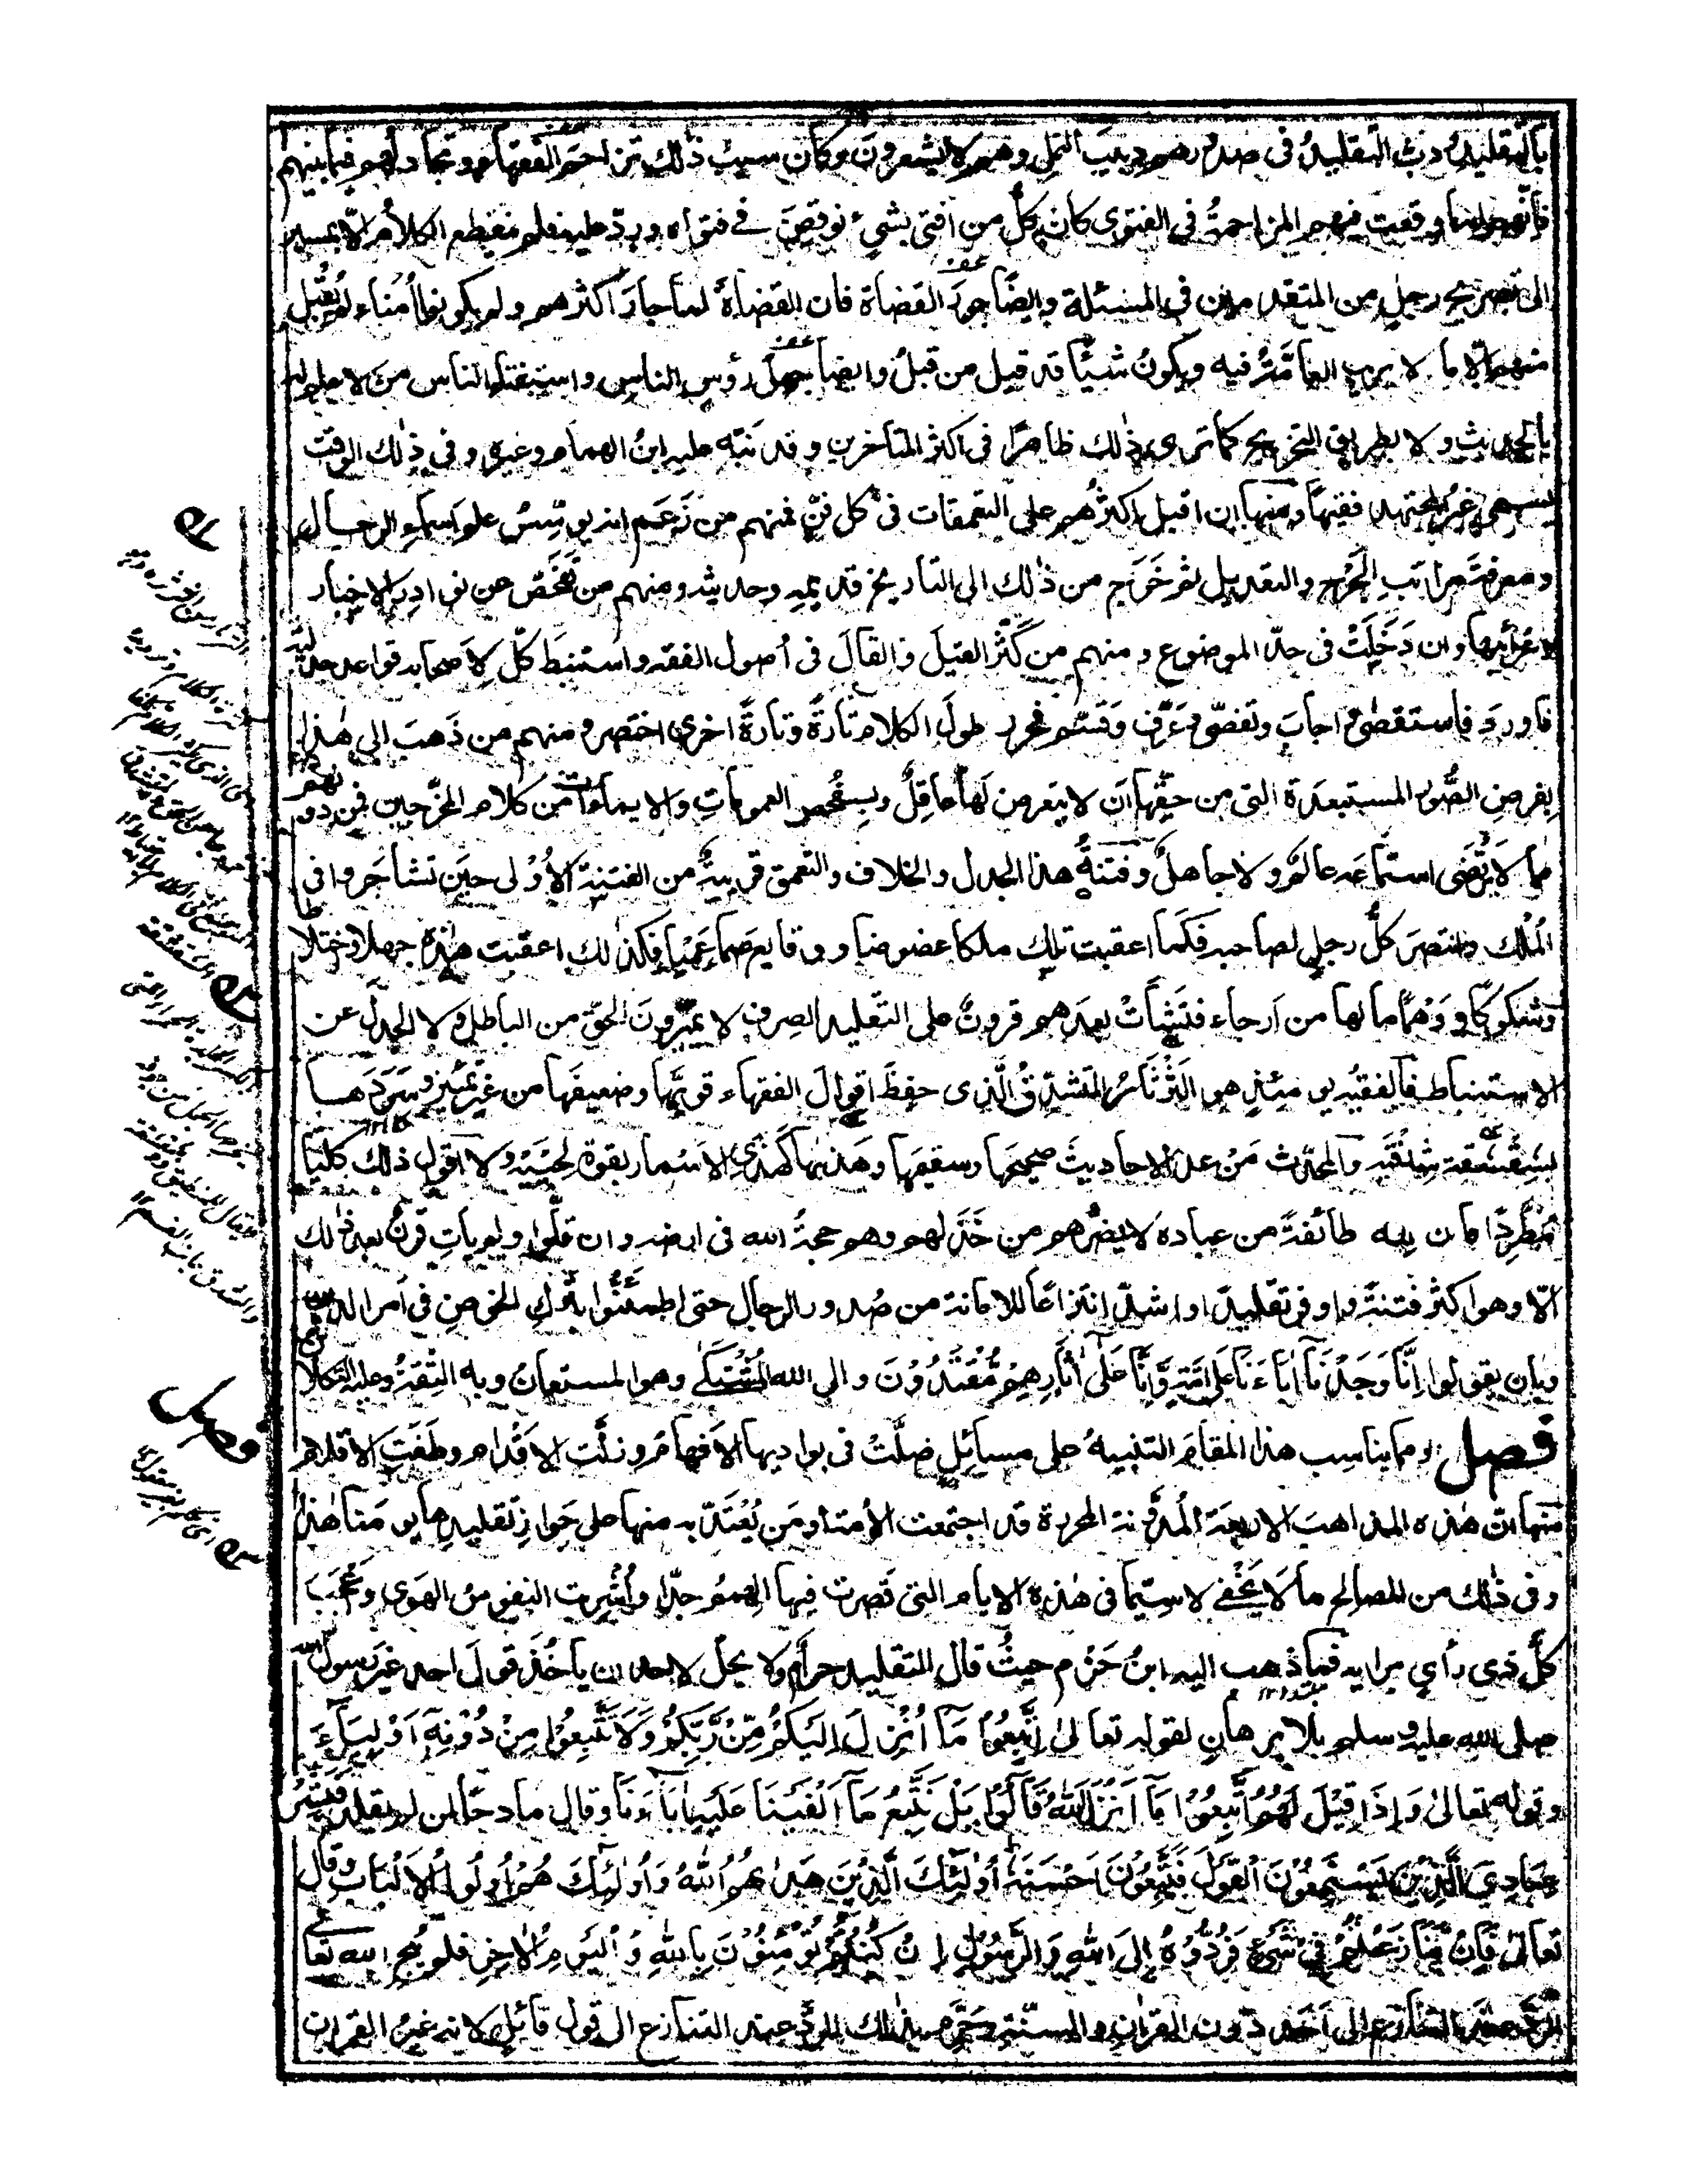 بالتقليد ودبّ التقليد في صدورهم دبيب النمل وهم لا يشعرون وكان سبب ذلك تزاحم الفقهاء وتجادلهم فيما بينهم
فانهم لما وقعت فيهم المزاحمة في الفتوى كان كلُّ من افتى بشيء نوقض في فتواه ورد عليه فلم ينقطع الكلام الّا بمسير
الى تصريح رجل من المتقدمين في المسئلة وايضًا جور القضاة فان القضاة لما جار اكثرهم ولم يكونوا أمناء لم يُقبل
منهم الّا ما لا يريب العامّة فيه ويكونُ شيئًا قد قيل من قبلُ وايضا جهل رؤس الناس واستفتاء الناس من لا علم له
بالحديث ولا بطريق التخريج كما ترى ذلك ظاهرًا في اكثر المتأخرين وقد نبّه عليه ابنُ الهمام وغيره وفي ذلك الوقت
يسمى غيرُ المجتهد فقيهًا ومنها ان اقبل اكثرُهم على التعمقات في كل فنّ فمنهم من زَعَم انه يؤسّسُ علم اسماء الرجال
ومعرفةَ مراتب الجَرْح والتعديل ثم خَرَج من ذلك الى التاريخ قديمه وحديثه ومنهم من تفحّص عن نوادر الاخبار
وغرائبها وان دَخَلَتْ في حدّ الموضوع ومنهم من كَثَّر القيلَ والقالَ في أصول الفقه واستنبطَ كلّ لاصحابه قواعد جدلية
فاورد فاستقصى واجابَ وتفصّى وعَرّف وقسّم فحرر طولَ الكلام تارةً وتارةً اخرى اختصر ومنهم من ذَهبَ الى هذا
بفرض الصُّور المستبعدة التي من حقّها ان لا يتعرض لها عاقلٌ وبفحص العمومات والايماءات من كلام المخرّجين فمن دونهم
مما لا يرتضى استماعه عالمٌ ولا جاهلٌ وفتنةُ هذا الجدل والخلاف والتعمق قريبةٌ من الفتنة الأولى حين تشاجروا في
المُلْك وانتصرَ كلُّ رجلٍ لصاحبه فكما اعقبت تلك ملكا عضوضا ووقايع صماء عمياء فكذلك اعقبت هذه جهلا واختلاطا
وشكوكًا ووَهْمًا ما لها من اَرجاء فنَشأَتْ بعدهم قرونٌ على التقليد الصرف لا يميّزون الحقّ من الباطل ولا الجدل عن
الاستنباط فالفقيه يومئذ هو الثَرْثَارُ المتشدّقُ الّذي حفظَ اقوالَ الفقهاء قويَّها وضعيفَها من غير تمييز وسَرَدَها
بشِقْشَقة شِدْقَيه والمحدّث مَنْ عدّ الاحاديثَ صحيحَها وسقيمَها وهَذَّها كهَذِّ الاسمار بقوة لحييه ولا اقول ذلك كليًا
مُطَّردًا فان لله طائفةً من عباده لا يضرُّهم من خَذَلهم وهم حجةُ الله في ارضه وان قلّوا ولم ياتِ قرنٌ بعد ذلك
الّا وهو اكثر فتنةً واوفر تقليدًا واشدّ انتزاعًا للامانة من صُدور الرجال حتى اطمئنّوا بتركِ الخوض في أمر الدين
وبان يقولوا اِنَّا وَجَدْنَا اٰبَاءَنَا عَلٰى اُمَّةٍ وَّاِنَّا عَلٰٓى اٰثَارِهِمْ مُّقْتَدُوْنَ والى الله المُشْتكى وهو المستعانُ وبه الثِقةُ وعليه التكلان
فصل ومما يناسب هذا المقامَ التنبيهُ على مسائِل ضلّتْ في بواديها الافهام وزلّت الاقدام وطغَت الاقلام
منها انّ هذه المذاهب الاربعة المُدوَّنة المحررة قد اجتمعت الأمة او مَن يُعْتَدّ به منها على جَواز تقليدها الى يومنا هذا
وفي ذلك من المصالح ما لا يَخْفى لا سيّما في هذه الايام التي قَصرت فيها الهممُ جدًّا واُشْرِبت النفوسُ الهَوى واُعجبَ
كلُّ ذي رأي برايه فما ذهب اليه ابنُ حَزْم حيثُ قال التقليد حرامٌ ولا يحلّ لاحد ان ياخُذَ قولَ احد غير رسول الله
صلى الله عليه وسلم بلا برهانٍ لقوله تعالى اِتَّبِعُوْا مَآ اُنْزِلَ اِلَيْكُمْ مِّنْ رَّبِّكُمْ وَلَا تَتَّبِعُوْا مِنْ دُوْنِهٖٓ اَوْلِيَآءَ
وقوله تعالى وَاِذَا قِيْلَ لَهُمُ اتَّبِعُوْا مَآ اَنْزَلَ اللهُ قَالُوْا بَلْ نَتَّبِعُ مَآ اَلْفَيْنَا عَلَيْهِ اٰبَآءَنَا وقال مادحًا لمن لم يقلد فبشر
عِبَادِيَ الَّذِيْنَ يَسْتَمِعُوْنَ الْقَوْلَ فَيَتَّبِعُوْنَ اَحْسَنَهٗ اُولٰٓئِكَ الَّذِيْنَ هَدٰىهُمُ اللهُ وَاُولٰٓئِكَ هُمْ اُولُوا الْاَلْبَابِ وقال
تعالى فَاِنْ تَنَازَعْتُمْ فِيْ شَيْءٍ فَرُدُّوْهُ اِلَى اللهِ وَالرَّسُوْلِ اِنْ كُنْتُمْ تُؤْمِنُوْنَ بِاللهِ وَالْيَوْمِ الْاٰخِرِ فلم يُبح الله تعالى
الردَّ عند التنازع الى اَحَد دون القرآن والسنّة وحَرَّم بذلك الردَّ عند التنازع الى قول قائل لانه غيرُ القران
فصل